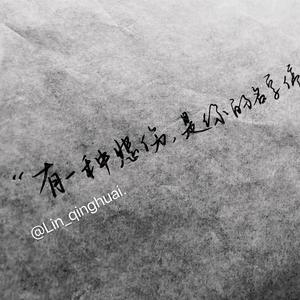 “有一种悲伤,是你的名字停
@Lin_qinghuai.